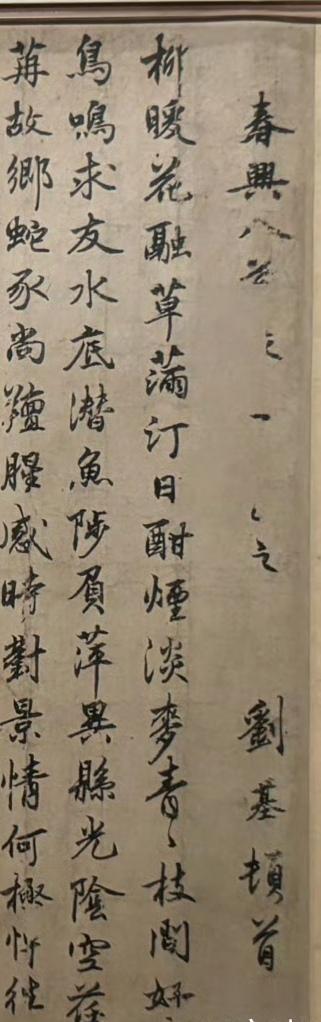 春興八首之一 劉基頓首
柳暖花融草滿汀日酣煙淡麥青〻枝間好
鳥鳴求友水底潛魚陟負萍異縣光陰空荏
苒故鄉蛇豕尚羶腥感時對景情何極